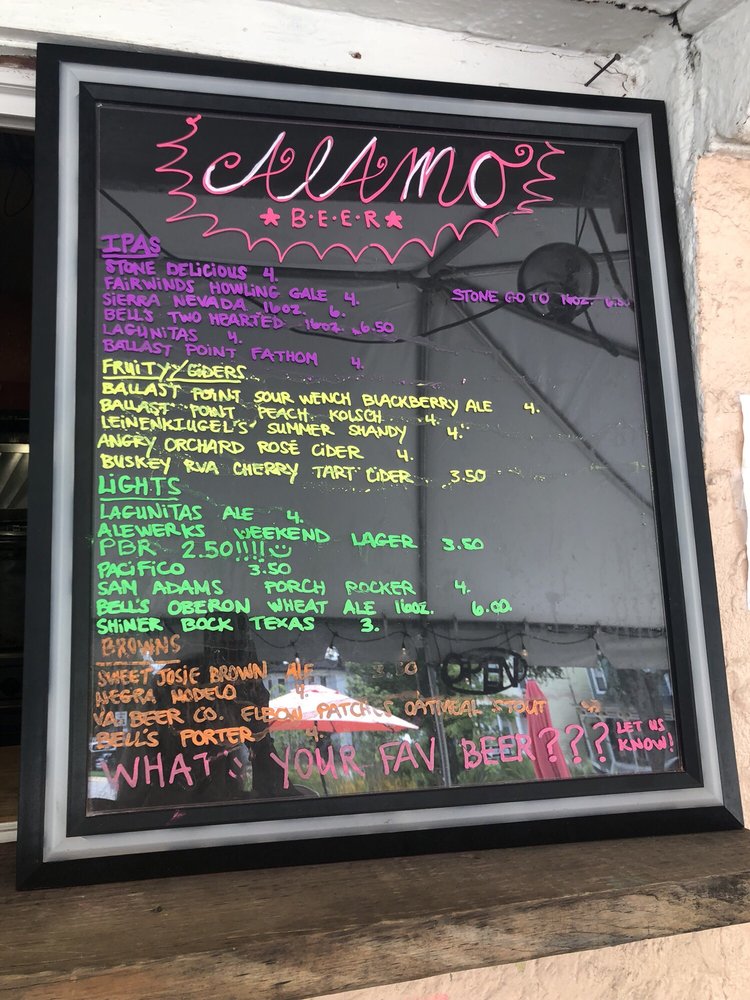 ALAMO
BEER
IPAS
STONE DELICIOUS 4.
FAIRWINDS HOWLING GALE 4.
STONE GO TO 16OZ. 6.50
SIERRA NEVADA 16OZ. 6.
BELL'S TWO HEARTED 16OZ. 6.50
LAGUNITAS 4.
BALLAST POINT FATHOM 4.
FRUITY/CIDERS
BALLAST POINT SOUR WENCH BLACKBERRY ALE 4.
BALLAST POINT PEACH KOLSCH 4.
LEINENKIUGEL'S SUMMER SHANDY 4.
ANGRY ORCHARD ROSÉ CIDER 4.
BUSKEY RVA CHERRY TART CIDER 3.50
LIGHTS
LAGUNITAS ALE 4.
ALEWERKS WEEKEND LAGER 3.50
PBR 2.50!!!!
PACIFICO 3.50
SAM ADAMS PORCH ROCKER 4.
BELL'S OBERON WHEAT ALE 16OZ. 6.00
SHINER BOCK TEXAS 3.
BROWNS
SWEET JOSIE BROWN ALE
OPEN
NEGRA MODELO 4.
VA BEER CO. ELBOW PATCHES OATMEAL STOUT
BELL'S PORTER 4.
WHAT'S YOUR FAV BEER???
LET US
KNOW!